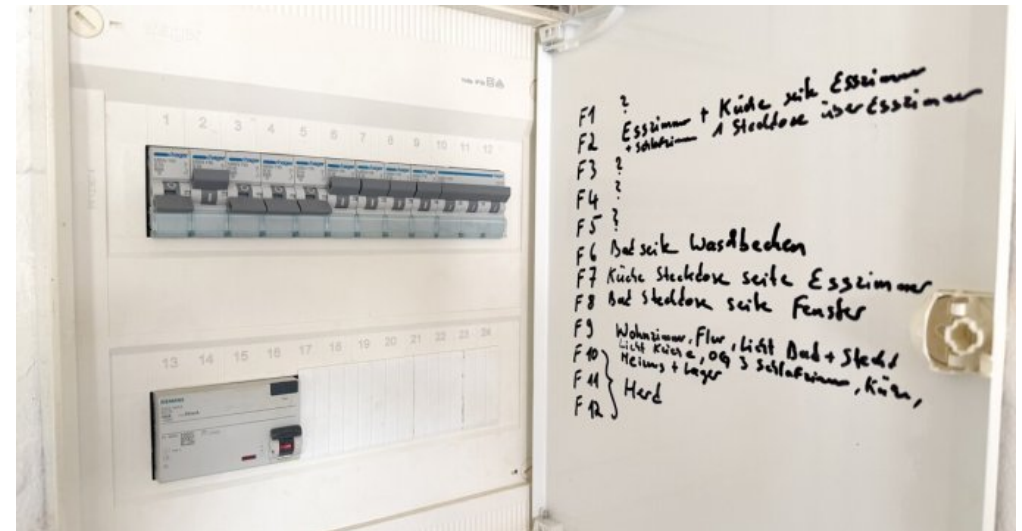 1 2 3 4 5 6 7 8 9 10 11 12
hager hager
13 14 15 16 17 18 19 20 21 22 23 24
SIEMENS
F1 ?
F2 Esszimmer + Küche seite Esszimmer
+ Schlafzimm 1 Steckdose über Esszimmer
F3 ?
F4 ?
F5 ?
F6 Bad seite Waschbecken
F7 Küche Steckdose seite Esszimmer
F8 Bad Steckdose seite Fenster
F9 Wohnzimmer, Flur, Licht Bad + Steckd
Licht Küche, OG 3 Schlafzimmer,
F10 Heizung + Lager
F11 Herd
F12